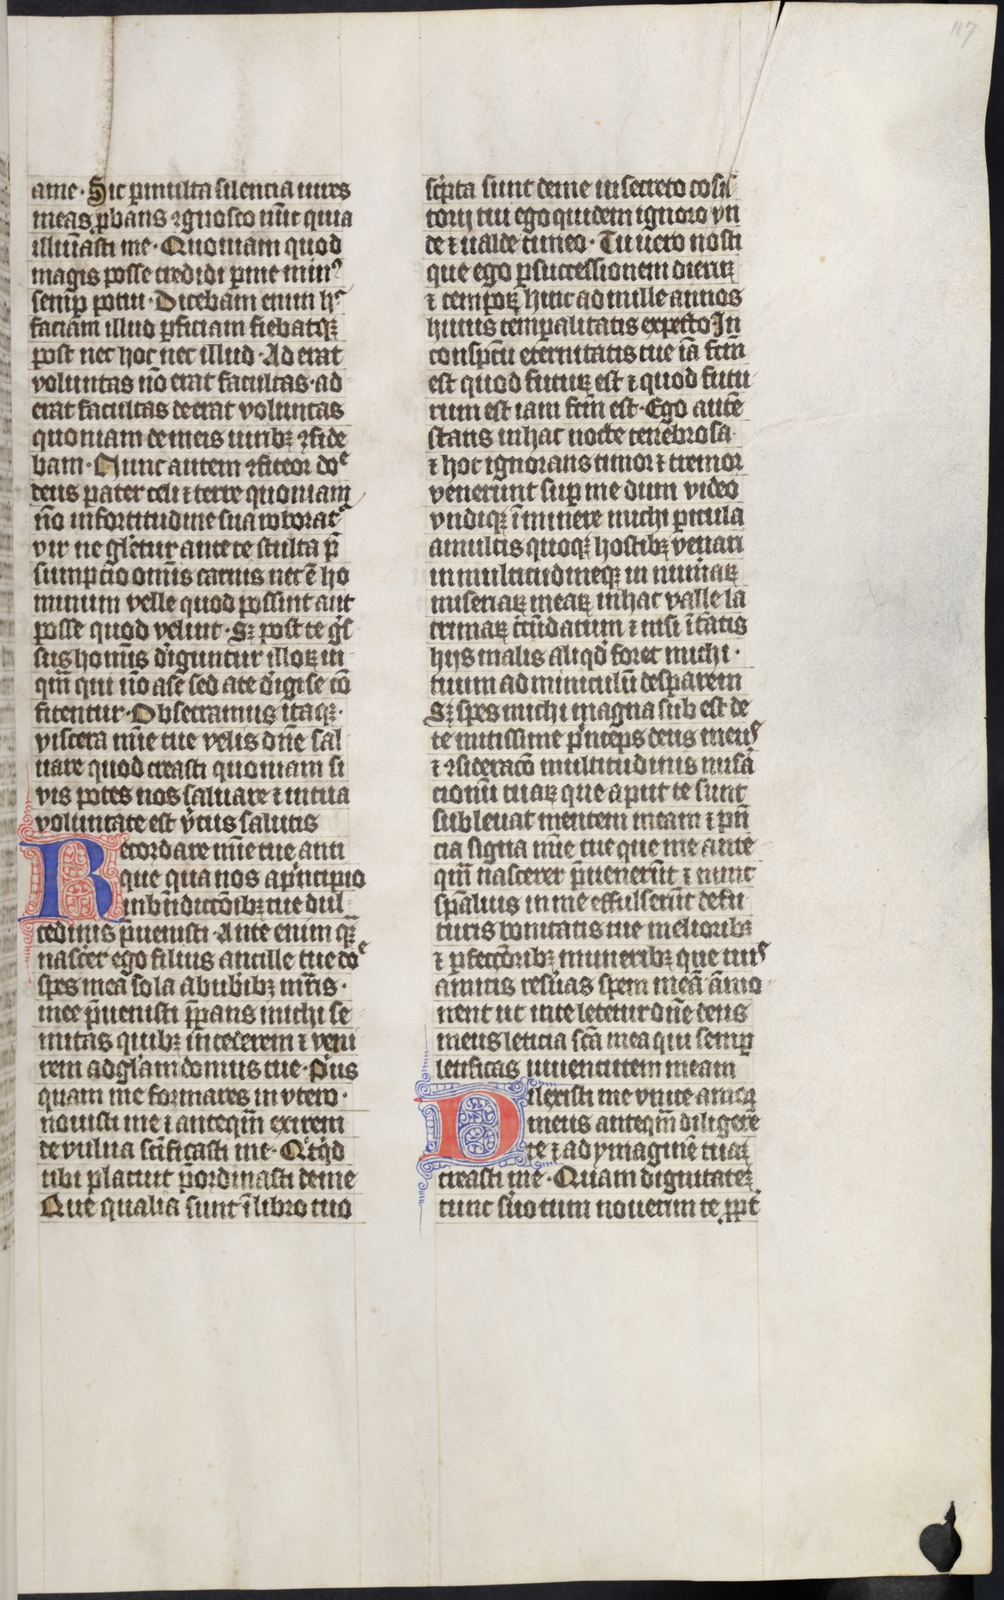 117
a me · Sic p multa silencia vires
meas ꝓbans ꝯgnosco nūc quia
illūasti me · Quoniam quod
magis posse credidi p me min᷒
semp potui · Dicebam enim h᷒
faciam illud ꝑficiam fiebatqꝫ
post nec hoc nec illud · Ad erat
voluntas nō erat facultas · ad
erat facultas deerat voluntas
quoniam de meis viribꝫ ꝯfide
bam · Nunc autem ꝯfiteor do
deus pater celi ⁊ terre quoniam
nō in fortitudine sua roborat
vir ne gletur ante te stulta p̄
sumpcio omīs carnis nec ē ho
minum velle quod possint aut
posse quod velint · Sꝫ post te gͥ
sus homīs diguntur illoꝝ in
qm̄ qui nō a se sed a te digi se cō
fitentur · Obsecramus itaqꝫ
viscera mīe tue velis dn̄e sal
uare quod creasti quoniam si
vis potes nos saluare ⁊ in tua
voluntate est v̊tus salutis
Recordare mīe tue anti
que qua nos a pͥncipio
in bn̄dictōibꝫ tue dul
cedinis p̄uenisti · Ante enim qꝫ
nascer ego filius ancille tue do
spes mea sola ab ub̓ibꝫ mr̄is ·
mee p̄uenisti p̄pans michi se
mitas quibꝫ incederem ⁊ veni
rem ad gl̄am domus tue · Pͥus
quam me formares in vtero ·
nouisti me ⁊ anteqm̄ exirem
de vulua scīficasti me · Qͥcqͥd
tibi placuit p̄ordinasti de me
Que qualia sunt ī libro tuo
scͥpta sunt de me in secreto cōsis
torij tui ego quidem ignoro vn
de ⁊ ualde timeo · Tu uero nosti
que ego p successionem dieruꝫ
⁊ tempoꝝ hinc ad mille annos
huius tempalitatis expecto In
conspc̄tu eternitatis tue iā fcm̄
est quod futuꝝ est ⁊ quod futu
rum est iam fcm̄ est · Ego autē
stans in hac nocte tenebrosa
⁊ hoc ignorans timor ⁊ tremor
venerunt sup me dum video
vndiqꝫ īminere michi picula
a multis quoqꝫ hostibꝫ venari
in multitudineqꝫ in numaꝝ
miseriaꝝ meaꝝ in hac valle la
crimaꝝ ⁊ nisi
hijs malis aliqd̄ foret michi ·
tuum adminiculū desparem
Sꝫ spes michi magna sub est de
te mitissime pͥnceps deus meus
⁊ ꝯsideracō multitudinis misa
cionū tuaꝝ que aput te sunt
subleuat mentem meam ⁊ pn̄
cia signa mīe tue que me ante
qm̄ nascerer p̄uenerūt ⁊ nunc
spālius in me effulserūt de fu
turis bonitatis tue melioribꝫ
⁊ ꝑfectōribꝫ muneribꝫ que tuis
amicis res̓uas spem meā āmo
nent ut in te leteter dn̄e deus
meus leticia scā mea qui semp
letificas iuuentutem meam
Dilexisti me vnice amor
meus anteqm̄ diligerē
te ⁊ ad ymaginē tuaꝫ
creasti me · Quam dignitateꝫ
tunc suo tum nouerim te ꝓpt̄